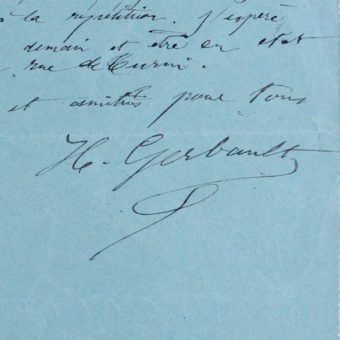 la répétition. J'espère
demain et être en état
rue de Turin.
et amitiés pour tous
H. Gerbault